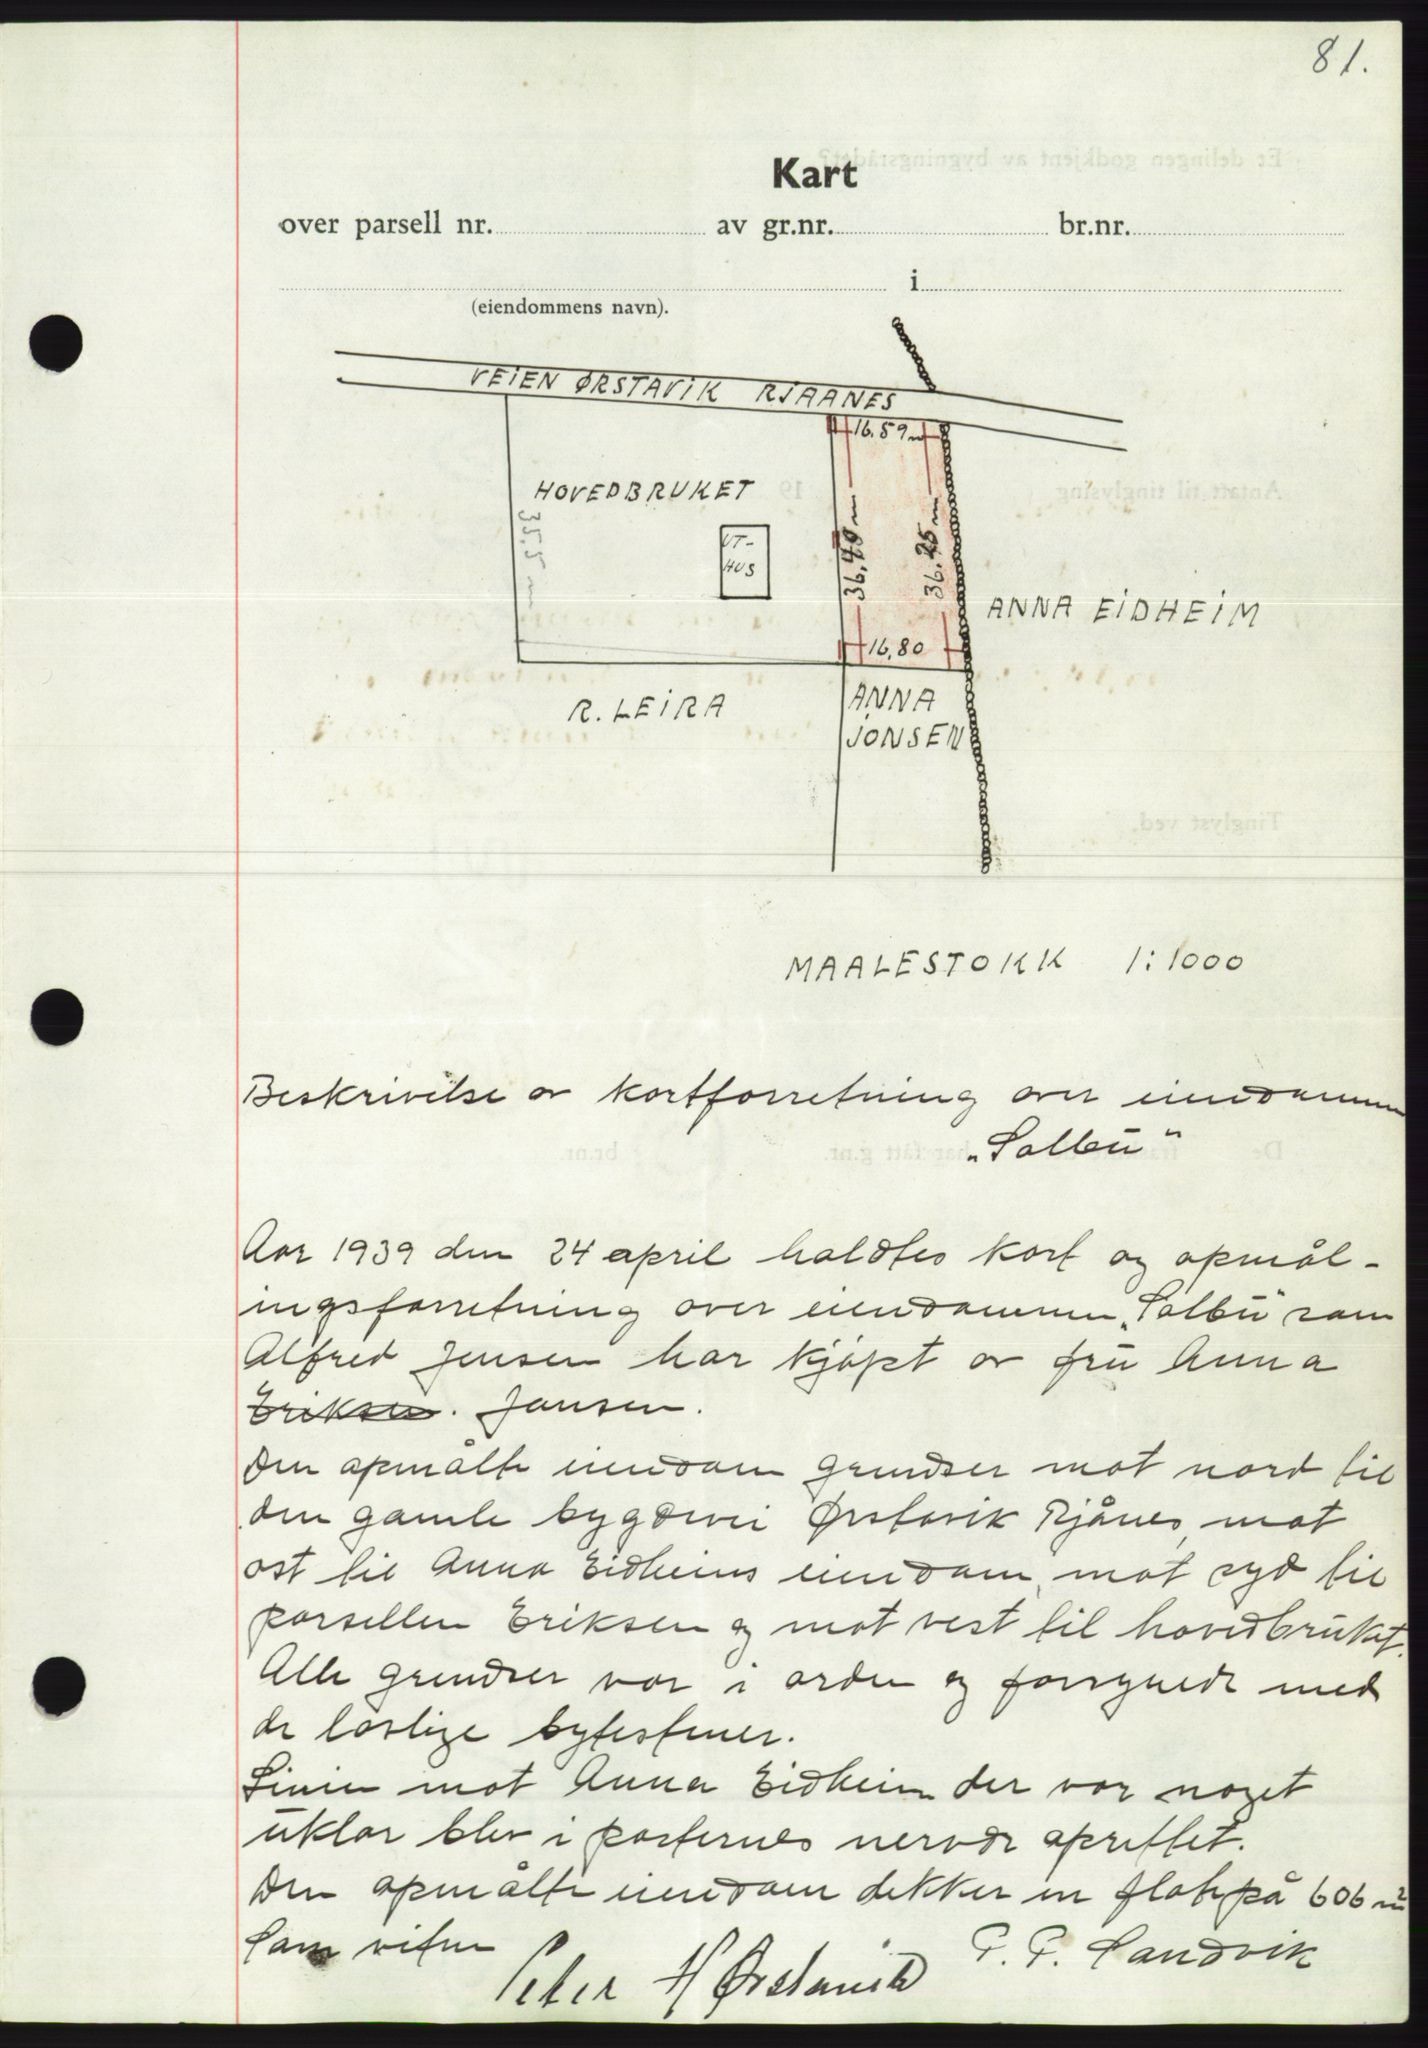 81.
Kart
over parsell nr. av gr.nr. br.nr.
i
(eiendommens navn).
VEIEN ØRSTAVIK RJAANES
16.59 m
HOVEDBRUKET
35.5 m
UT-
HUS
36.40 m
36.25 m
ANNA EIDHEIM
16.80
R. LEIRA
ANNA
JONSEN
MAALESTOKK 1:1000
Beskrivelse av kartforretning over eiendommen
"Solbu"
Aar 1939 den 24 april holdtes kart og opmål-
ingsforretning over eiendommen "Solbu" som
Alfred Jensen har kjøpt av fru Anna
Eriksen. Jonsen.
Den opmålte eiendom grendser mot nord til
den gamle bygdevei Ørstavik Rjånes, mot
øst til Anna Eidheims eiendom, mot syd til
parsellen Eriksen og mot vest til hovedbruket.
Alle grendser var i orden og forsynede med
de lovlige bytestener.
Linien mot Anna Eidheim der var noget
uklar blev i parternes nervær oprettet.
Den opmålte eiendom dekker en flate på 606 m²
Som vitne
Peter H Ørstavik
P. P. Sandvik
Er delingen godkjent av bygningsrådet?
Antatt til tinglysing 19
Tinglyst ved.
De har fått g.nr. br.nr.